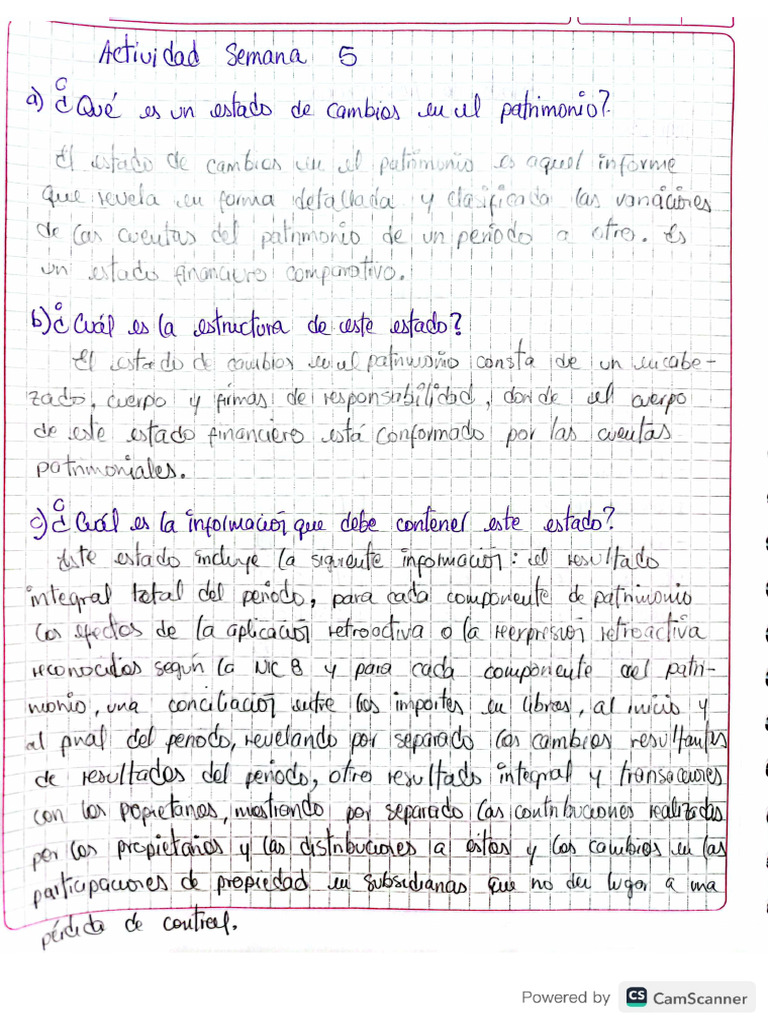 Actividad Semana 5
a) ¿Qué es un estado de cambios en el patrimonio?
El estado de cambios en el patrimonio es aquel informe
que revela en forma detallada y clasificada las variaciones
de las cuentas del patrimonio de un período a otro. Es
un estado financiero comparativo.
b) ¿Cuál es la estructura de este estado?
El estado de cambios en el patrimonio consta de un encabe-
zado, cuerpo y firmas de responsabilidad, donde el cuerpo
de este estado financiero está conformado por las cuentas
patrimoniales.
c) ¿Cuál es la información que debe contener este estado?
Este estado incluye la siguiente información: el resultado
integral total del período, para cada componente de patrimonio
los efectos de la aplicación retroactiva o la reerpresión retroactiva
reconocidos según la NIC 8 y para cada componente del patri-
monio, una conciliación entre los importes en libros, al inicio y
al final del período, revelando por separado los cambios resultantes
de resultados del período, otro resultado integral y transacciones
con los popietarios, mostrando por separado las contribuciones realizadas
por los propietarios y las distribuciones a estos y los cambios en las
participaciones de propiedad en subsidiarias que no den lugar a una
pérdida de control.
Powered by CS CamScanner